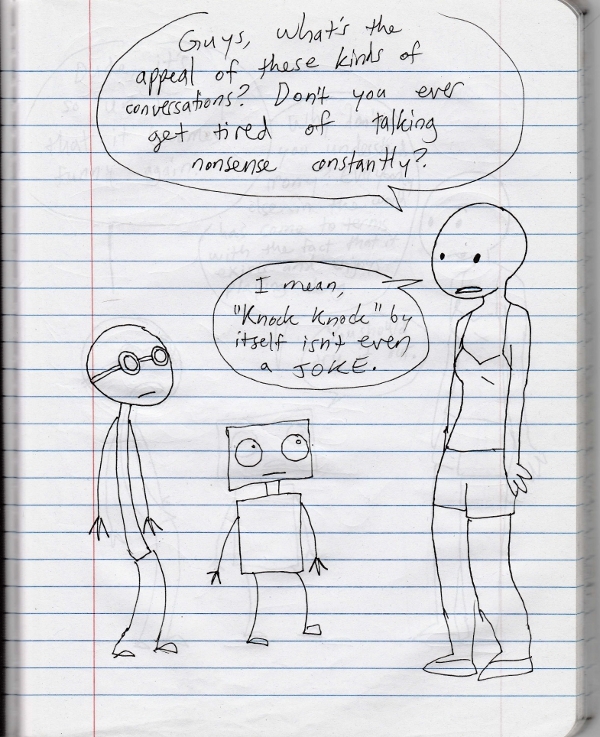 Guys, what's the
appeal of these kinds of
conversations? Don't you ever
get tired of talking
nonsense constantly?
I mean,
"Knock Knock" by
itself isn't even
a JOKE.